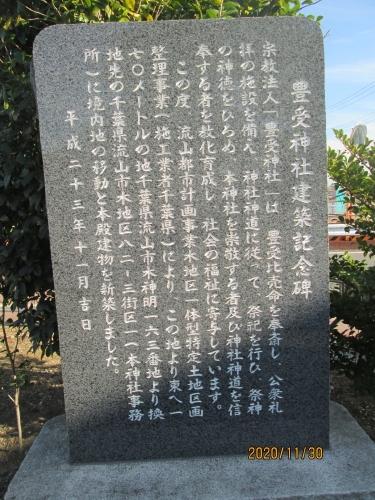 豊受神社建築記念碑
宗教法人「豊受神社」は、豊受比売命を奉斎し、公衆礼
拝の施設を備え、神社神道に従って、祭祀を行ひ、祭神
の神徳をひろめ、本神社を崇敬する者及び神社神道を信
奉する者を教化育成し、社会の福祉に寄与しています。
この度、流山都市計画事業木地区一体型特定土地区画
整理事業(施工業者千葉県)により、この地より東へ一
七〇メートルの地千葉県流山市木神明一六三番地より換
地先の千葉県流山市木地区八二-三街区一(本神社事務
所)に境内地の移動と本殿建物を新築しました。
平成二十三年十一月吉日
2020/11/30